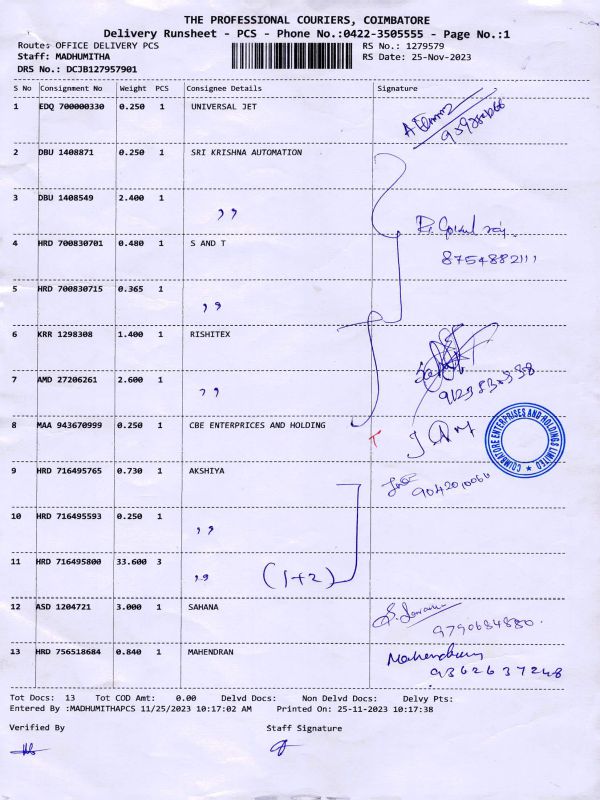 THE PROFESSIONAL COURIERS, COIMBATORE
Delivery Runsheet - PCS - Phone No.:0422-3505555 - Page No.:1
Route: OFFICE DELIVERY PCS RS No.: 1279579
Staff: MADHUMITHA RS Date: 25-Nov-2023
DRS No.: DCJB127957901
S No Consignment No Weight PCS Consignee Details Signature
1 EDQ 700000330 0.250 1 UNIVERSAL JET
2 DBU 1408871 0.250 1 SRI KRISHNA AUTOMATION
3 DBU 1408549 2.400 1 ,,
4 HRD 700830701 0.480 1 S AND T
8754882111
5 HRD 700830715 0.365 1 ,,
6 KRR 1298308 1.400 1 RISHITEX
7 AMD 27206261 2.600 1 ,,
8 MAA 943670999 0.250 1 CBE ENTERPRICES AND HOLDING
COIMBATORE ENTERPRISES AND HOLDINGS LIMITED
9 HRD 716495765 0.730 1 AKSHIYA
10 HRD 716495593 0.250 1 ,,
11 HRD 716495800 33.600 3 ,, (1+2)
12 ASD 1204721 3.000 1 SAHANA
9790684880.
13 HRD 756518684 0.840 1 MAHENDRAN Mahendran
9362637248
Tot Docs: 13 Tot COD Amt: 0.00 Delvd Docs: Non Delvd Docs: Delvy Pts:
Entered By :MADHUMITHAPCS 11/25/2023 10:17:02 AM Printed On: 25-11-2023 10:17:38
Verified By Staff Signature